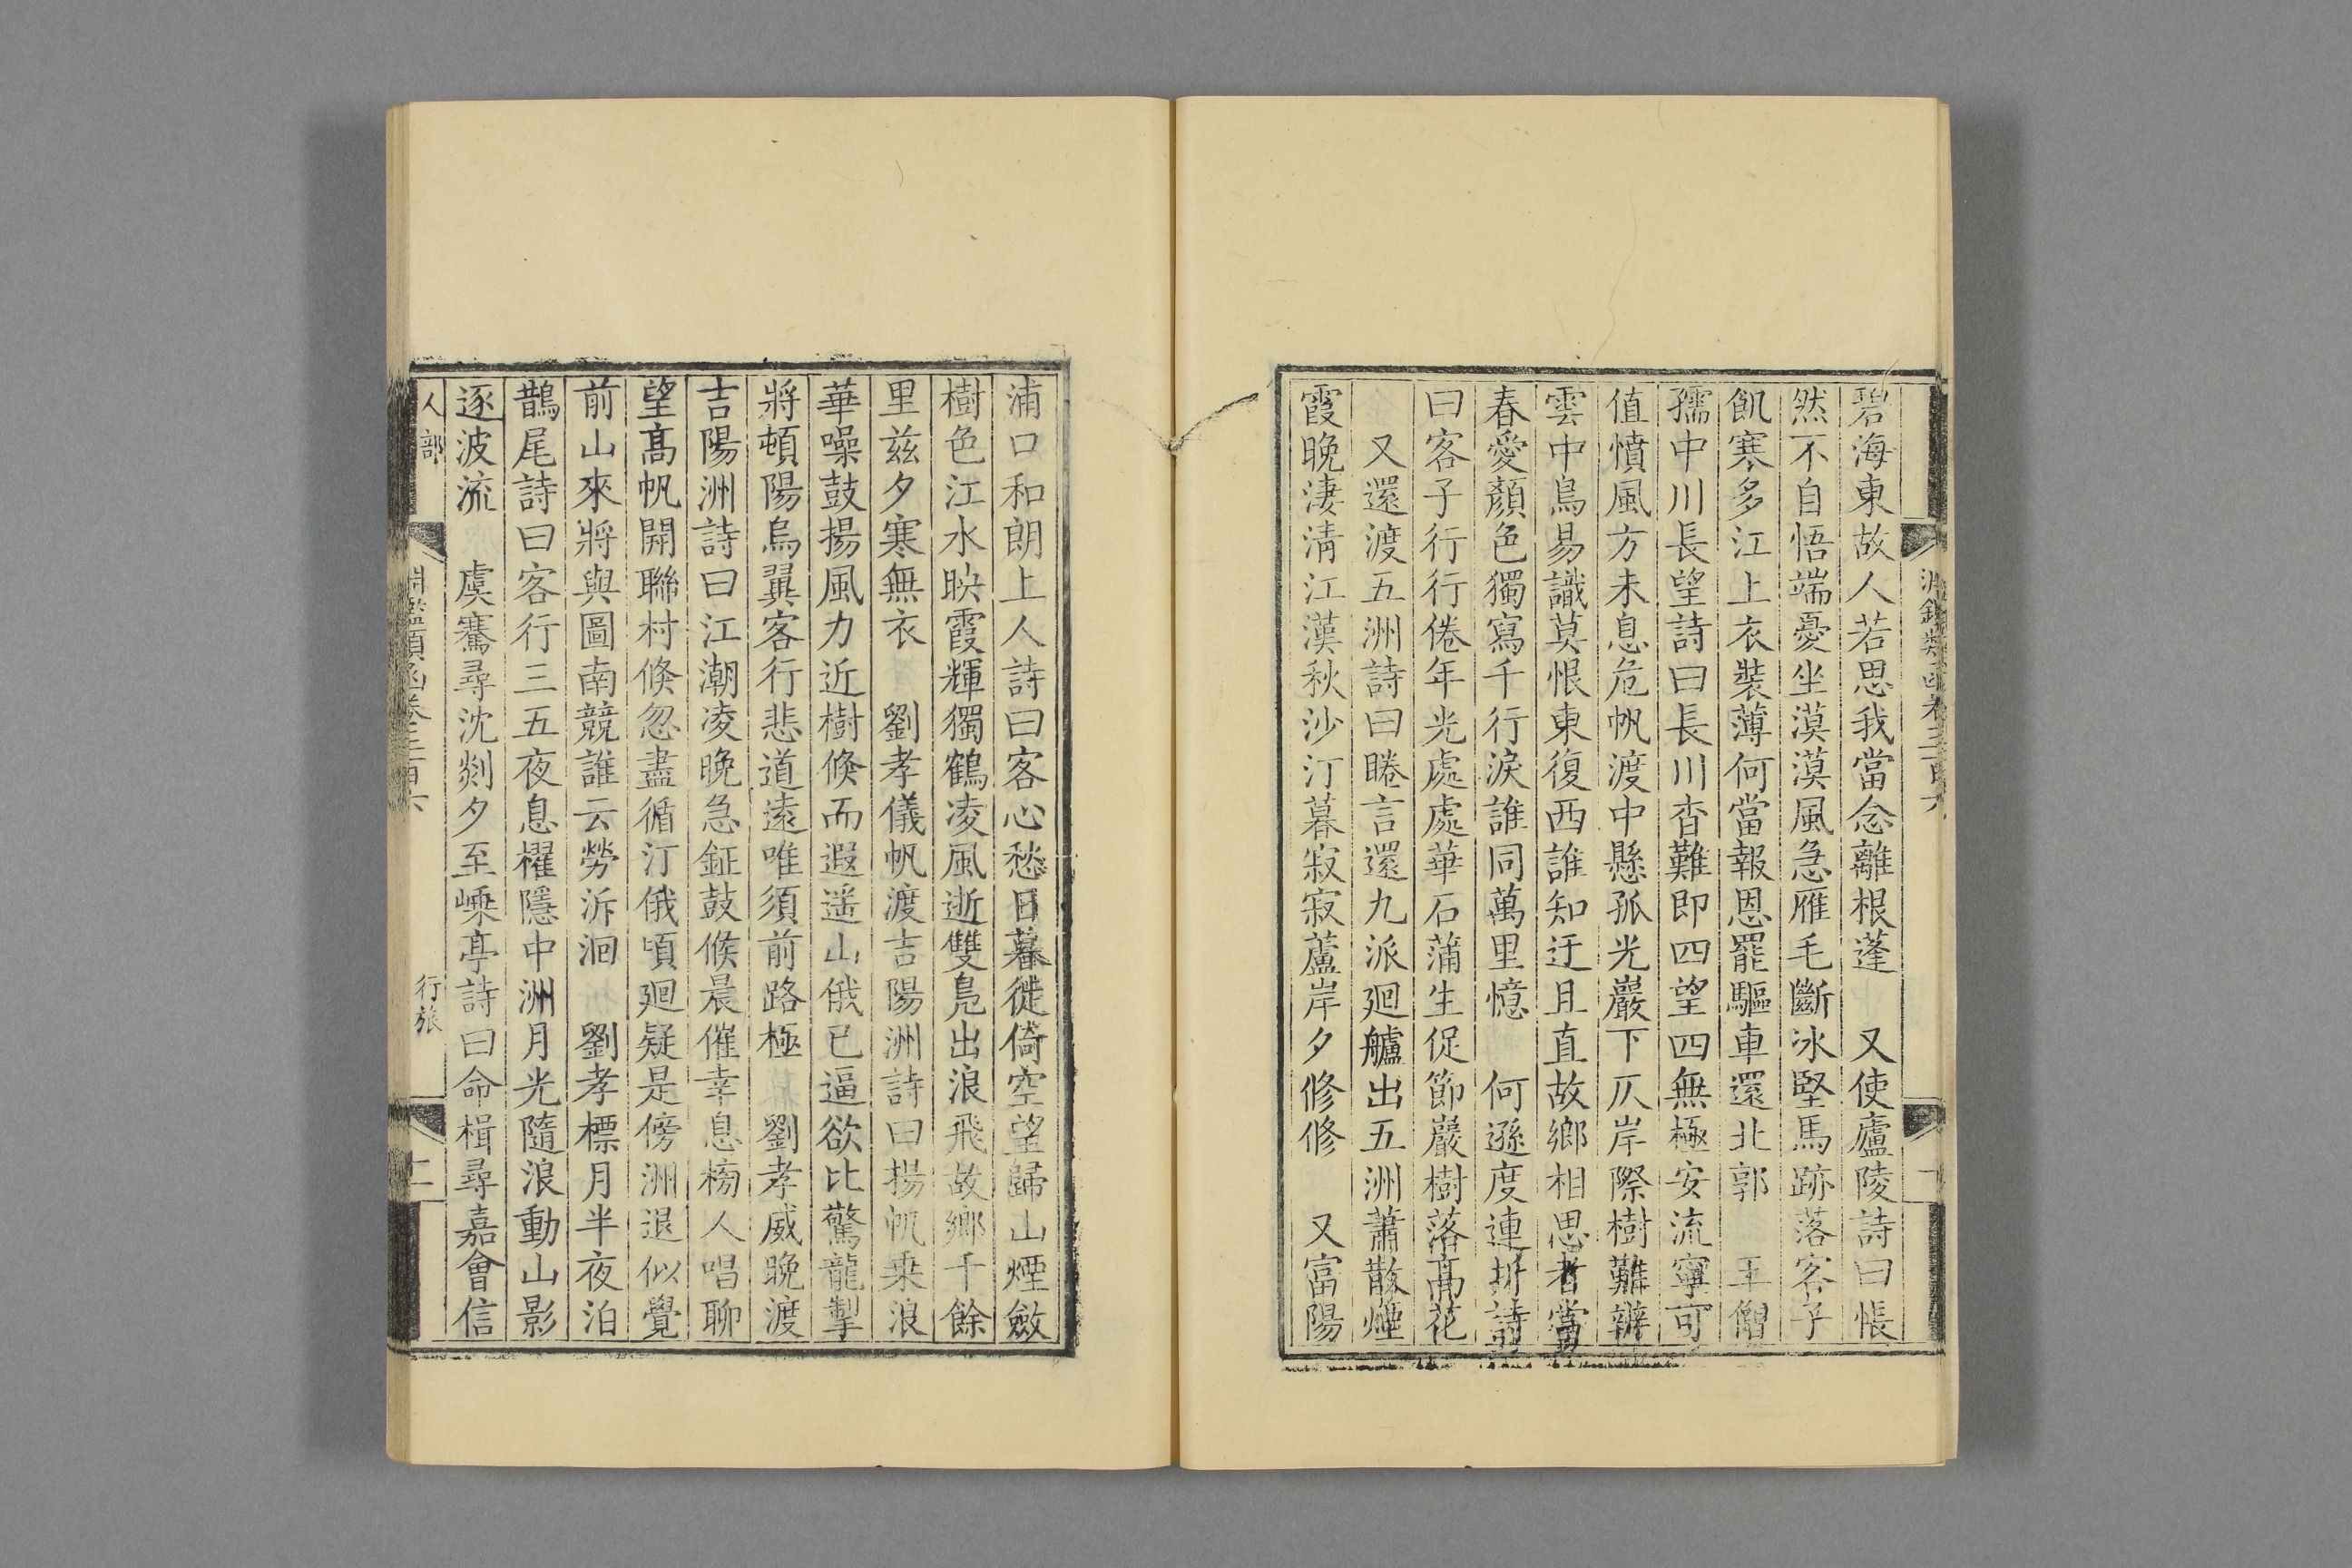 碧海東故人若思我當念離根蓬 又使廬陵詩曰悵
然不自悟端憂坐漠漠風急雁毛斷冰堅馬跡落客子
飢寒多江上衣裝薄何當報恩罷驅車還北郭 王僧
孺中川長望詩曰長川杳難即四望四無極安流寧可
值憤風方未息危帆渡中懸孤光巖下仄岸際樹難辨
雲中鳥易識莫恨東復西誰知迂且直故鄉相思者當
春愛顏色獨寫千行淚誰同萬里憶 何遜度連圻詩
曰客子行行倦年光處處華石蒲生促節巖樹落高花
又還渡五洲詩曰睠言還九派廻艫出五洲蕭散煙
霞晚淒清江漢秋沙汀暮寂寂蘆岸夕修修 又富陽
浦口和朗上人詩曰客心愁日暮徙倚空望歸山煙斂
樹色江水映霞輝獨鶴凌風逝雙鳧出浪飛故鄉千餘
里兹夕寒無衣 劉孝儀帆渡吉陽洲詩曰揚帆乗浪
華噪鼓揚風力近樹倐而遐遥山俄已逼欲比驚龍掣
將頓陽烏翼客行悲道遠唯須前路極 劉孝威晚渡
吉陽洲詩曰江潮凌晚急鉦鼓候晨催幸息榜人唱聊
望高帆開聯村倐忽盡循汀俄頃廻疑是傍洲退似覺
前山來將與圖南競誰云勞泝洄 劉孝標月半夜泊
鵲尾詩曰客行三五夜息櫂隱中洲月光隨浪動山影
逐波流 虞騫尋沈剡夕至嵊亭詩曰命楫尋嘉會信
人部 淵鑑類函卷三百六 行旅 二